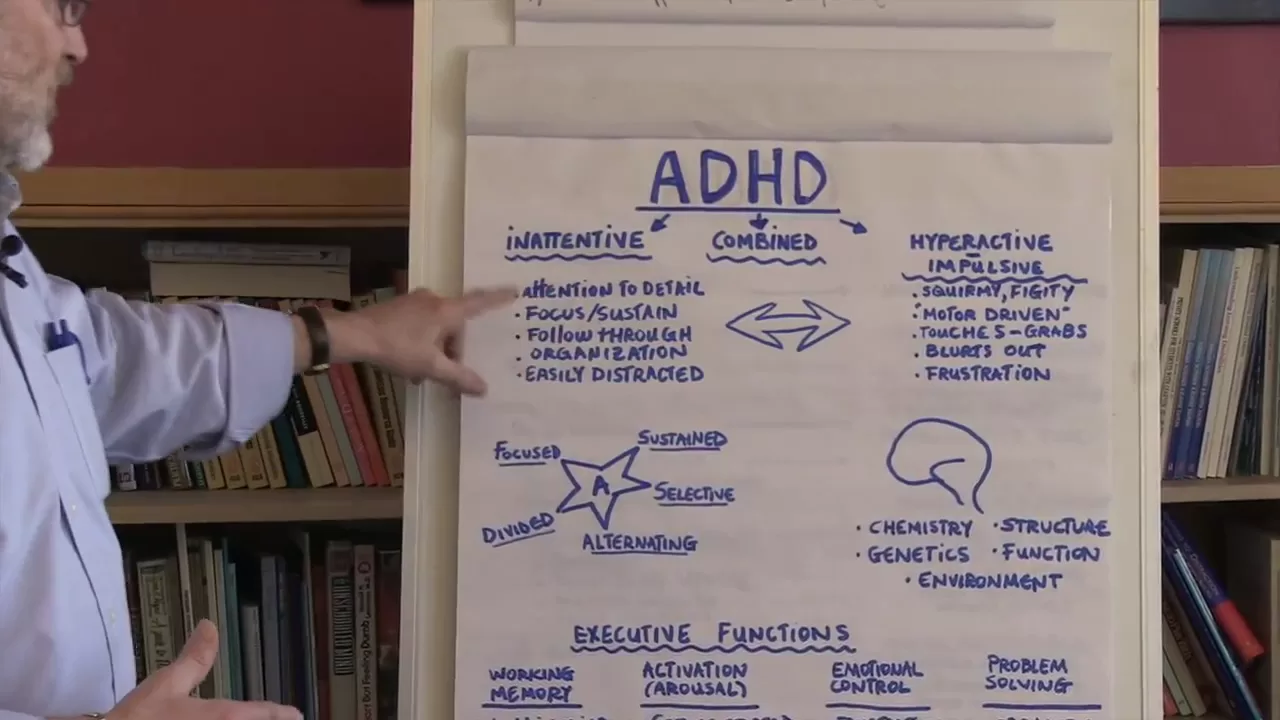 ADHD
INATTENTIVE
COMBINED
HYPERACTIVE
IMPULSIVE
• ATTENTION TO DETAIL
• FOCUS/SUSTAIN
• FOLLOW THROUGH
• ORGANIZATION
• EASILY DISTRACTED
• SQUIRMY, FIGITY
• "MOTOR DRIVEN"
• TOUCHES-GRABS
• BLURTS OUT
• FRUSTRATION
FOCUSED
SUSTAINED
A
SELECTIVE
DIVIDED
ALTERNATING
• CHEMISTRY • STRUCTURE
• GENETICS • FUNCTION
• ENVIRONMENT
EXECUTIVE FUNCTIONS
WORKING
MEMORY
ACTIVATION
(AROUSAL)
EMOTIONAL
CONTROL
PROBLEM
SOLVING